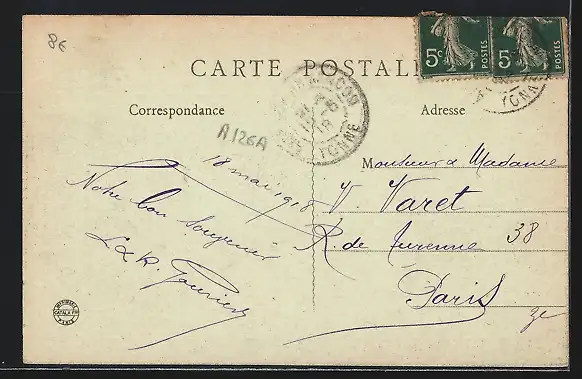 8€
CARTE POSTALE
5c POSTES 5 POSTES
Correspondance
Adresse
YONNE
YONNE
A126A
18 mai 1918
Notre bon Souvenir
Monsieur & Madame
V. Varet
R. de Turenne 38
Paris
3e
PARIS